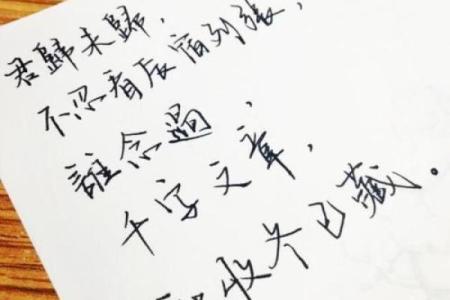 君歸未歸，
不忍看辰宿列張，
誰念過，
千字文章，
收冬已藏。